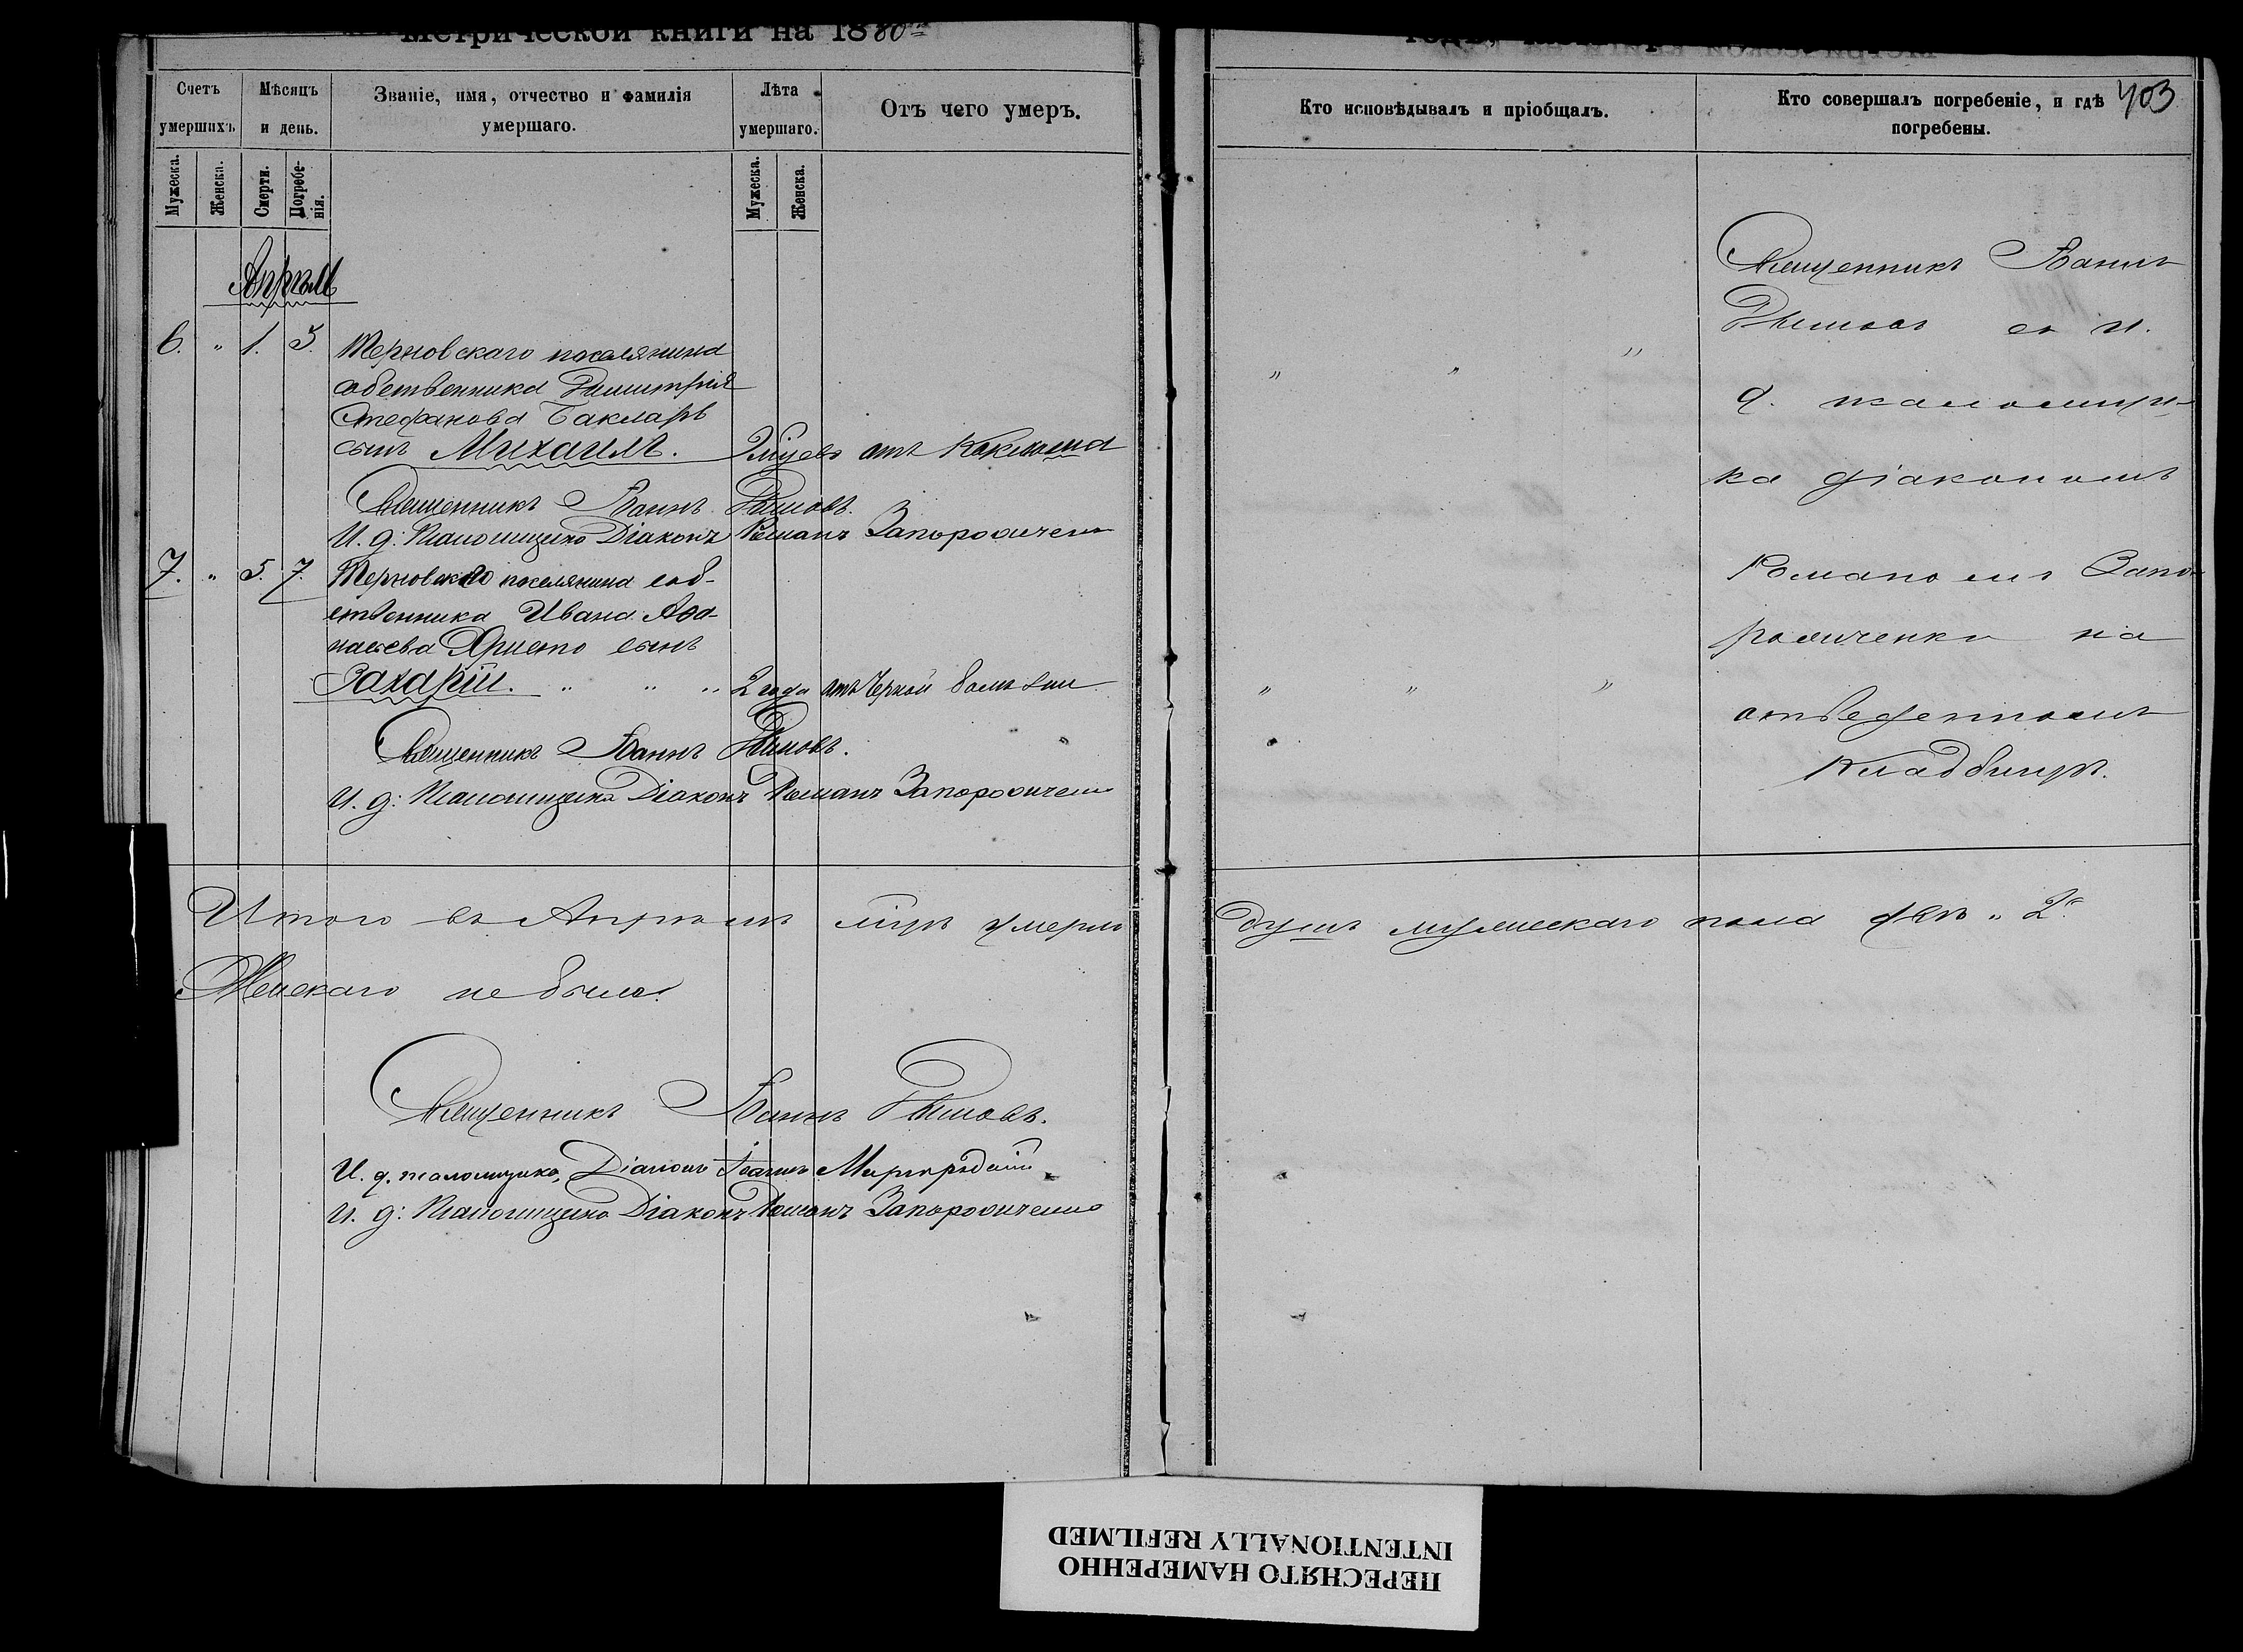 метрической книги на 1880
Счетъ умершихъ.
Мѣсяцъ и день.
Званіе, имя, отчество и фамилія умершаго.
Лѣта умершаго.
Отъ чего умеръ.
Мужеска.
Женска.
Смерти.
Погребе-
нія.
Мужеска.
Женска.
Апрѣль
6. " 1. 3. Терновскаго поселянина
собственника Димитрія
Стефанова Бакларъ
сынъ Михаилъ. отъ Коклюша
Священникъ Іоаннъ
И. д: Псаломщика Діаконъ Романъ Запорожченко
7. " 5. 7. Терновскаго поселянина соб-
ственника Ивана Аѳа-
насьева Христо сынъ
Захарій. " " " 2 года отъ Черной болѣзни
Священникъ Іоаннъ
И. д: Псаломщика Діаконъ Романъ Запорожченко
Итого въ Апрѣлѣ м-цѣ умерло
Женскаго не было.
Священникъ Іоаннъ
И. д. псаломщика, Діаконъ Іоаннъ
И. д: Псаломщика Діаконъ Романъ Запорожченко
Кто исповѣдывалъ и пріобщалъ.
Кто совершалъ погребеніе, и гдѣ погребены.
403
" " "
" " "
Священникъ Іоаннъ
съ и.
д. псаломщи-
ка діакономъ
Романомъ Запо-
рожченко на
отведенномъ
Кладбищѣ.
душъ мужескаго пола два " 2.
ПЕРЕСНЯТО НАМЕРЕННО
INTENTIONALLY REFILMED